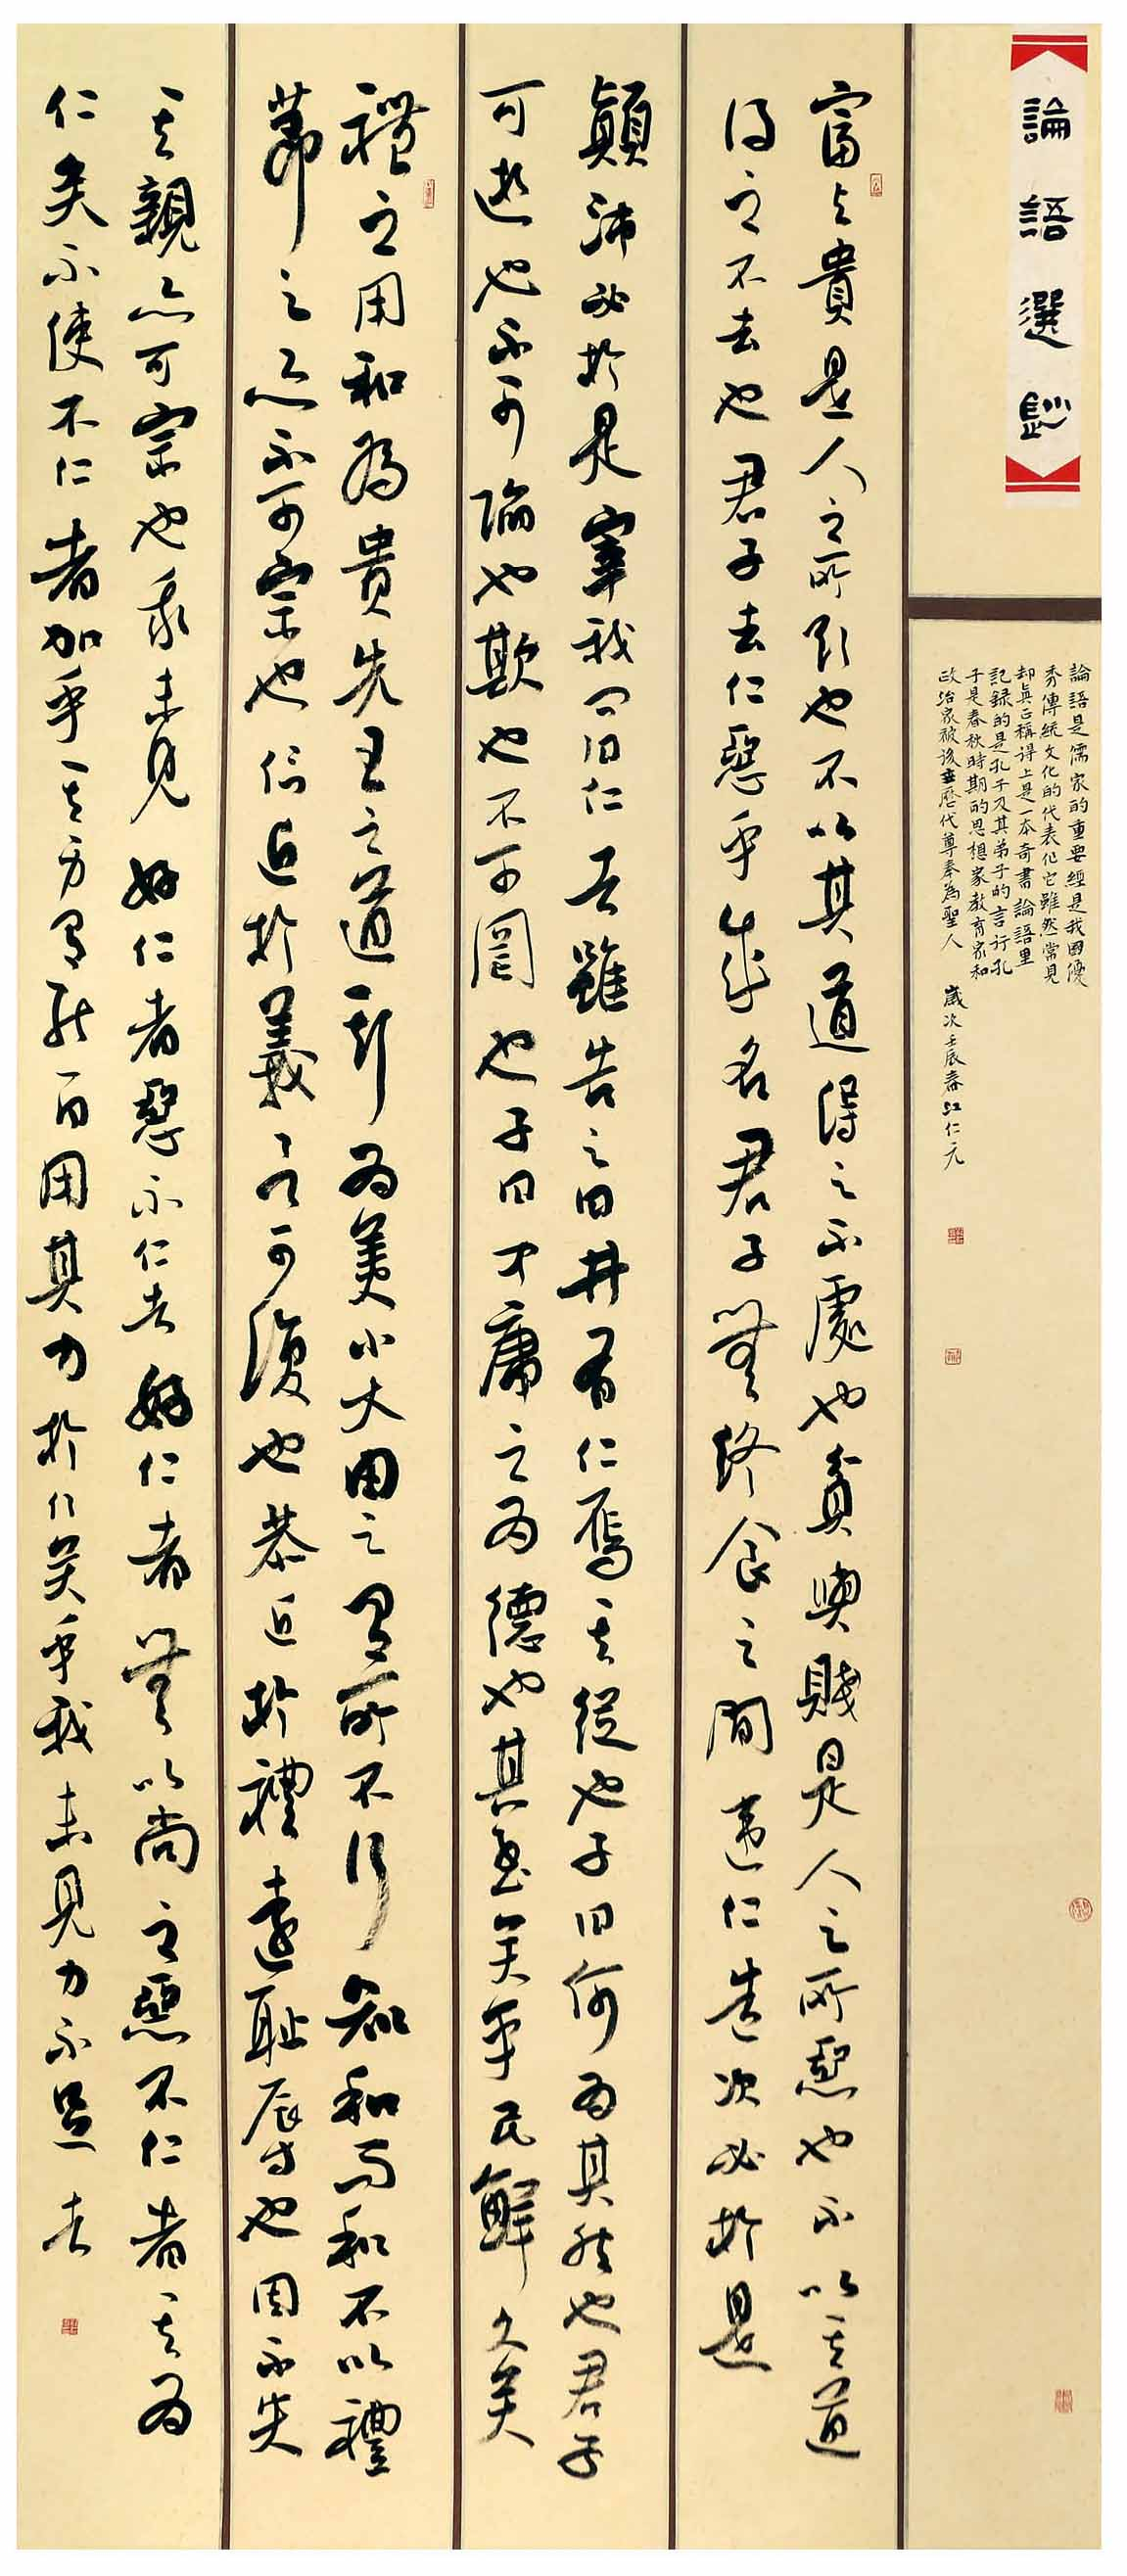 論語選鈔
論語是儒家的重要經是我國優
秀傳統文化的代表作它雖然常見
却真正稱得上是一本奇書論語里
記録的是孔子及其弟子的言行孔
子是春秋時期的思想家教育家和
政治家被後世歷代尊奉為聖人
歲次壬辰春江仁元
富與貴是人之所欲也不以其道得之不處也貧與賤是人之所惡也不以其道
得之不去也君子去仁惡乎成名君子無終食之間違仁造次必於是
顛沛必於是宰我問曰仁者雖告之曰井有仁焉其從也子曰何為其然也君子
可逝也不可陷也欺也不可罔也子曰中庸之為德也其至矣乎民鮮久矣
禮之用和為貴先王之道斯為美小大由之有所不行知和而和不以禮
節之亦不可宗也信近於義言可復也恭近於禮遠恥辱也因不失
其親亦可宗也我未見好仁者惡不仁者好仁者無以尚之惡不仁者其為
仁矣不使不仁者加乎其身有能一日用其力於仁矣乎我未見力不足者